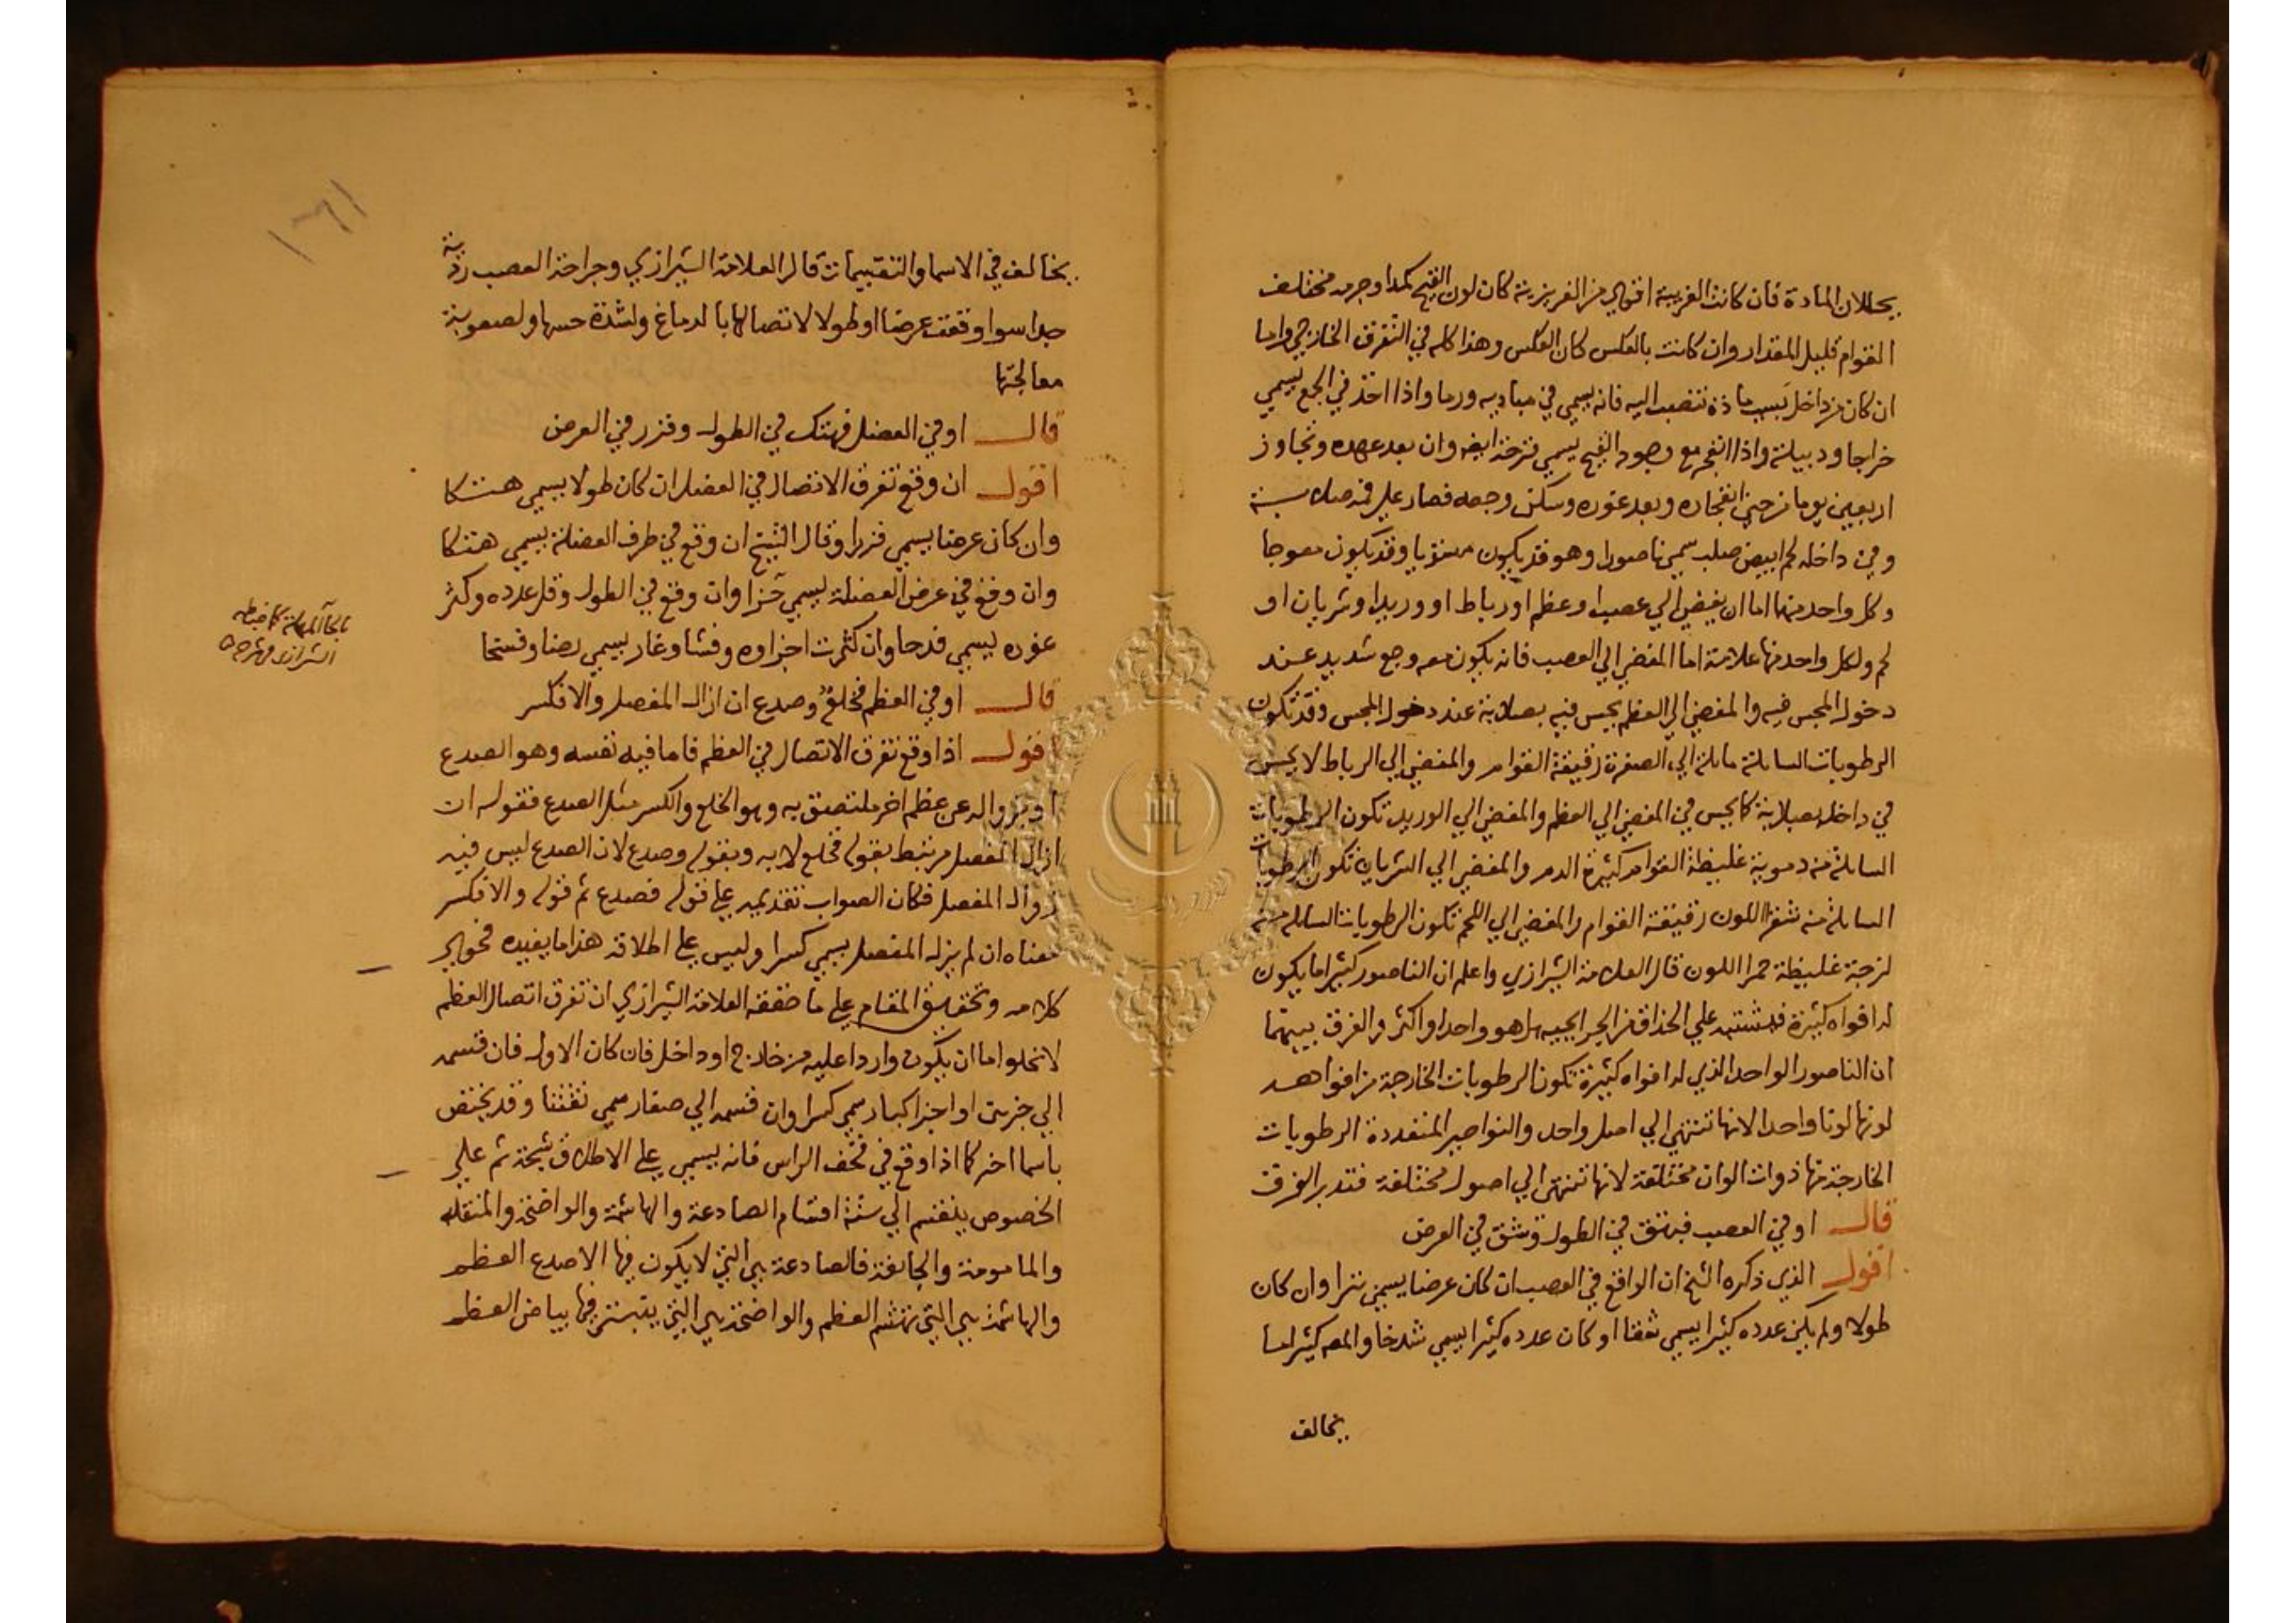 يحللان المادة فان كانت الغريبة اقوي من الغريزية كان لون القيح كمدا وجرمه مختلف
القوام قليل المقدار وان كانت بالعكس كان العكس وهذا كله في التفرق الخارجي واما
ان كان من داخل بسبب مادة تنصب اليه فانه يسمي في مباديه ورما واذا اخذ في الجمع يسمي
خراجا ودبيلة واذا انفجر مع وجود القيح يسمي قرحة ايضا وان بعد عهده وتجاوز
اربعين يوما من حين انفجاره وبعد غوره وسكن وجعه فصار علي فمه صلابة
وفي داخله لحم ابيض صلب سمي ناصورا وهو قد يكون مستويا وقد يكون معوجا
وكل واحد منهما اما ان يفضي الي عصب او عظم او رباط او وريد او شريان او
لحم ولكل واحد منها علامة اما المفضي الي العصب فانه يكون معه وجع شديد عند
دخول المجس فيه والمفضي الي العظم يحس فيه بصلابة عند دخول المجس وقد تكون
الرطوبات السايلة مايلة الي الصفرة رقيقة القوام والمفضي الي الرباط لا يحس
في داخله بصلابة كما يحس في المفضي الي العظم والمفضي الي الوريد تكون الرطوبات
السايلة منه دموية غليظة القوام كثيرة الدم والمفضي الي الشريان تكون الرطوبات
السايلة منه شقرا اللون رقيقة القوام والمفضي الي اللحم تكون الرطوبات السايله منه
لزجة غليظة حمرا اللون قال العلامة الشيرازي واعلم ان الناصور كثيرا ما يكون
له افواه كثيرة فيشتبه علي الحذاق من الجرايحيه هل هو واحد او اكثر والفرق بينهما
ان الناصور الواحد الذي له افواه كثيرة تكون الرطوبات الخارجة من افواهه
لونها لونا واحدا لانها تنتهي الي اصل واحد والنواصير المتعددة الرطوبات
الخارجة منها ذوات الوان مختلفة لانها تنتهي الي اصول مختلفة فتدبر الفرق
قال او في العصب فبتق في الطول وشق في العرض
اقول الذي ذكره الشيخ ان الواقع في العصب ان كان عرضا يسمي بترا وان كان
طولا ولم يكن عدده كثيرا يسمي شقا او كان عدده كثيرا يسمي شدخا والمص كثيرا ما
يخالف
يخالف في الاسما والتقسيمات قال العلامة الشيرازي وجراحة العصب ردية
جدا سوا وقعت عرضا او طولا لاتصالها بالدماغ ولشدة حسها ولصعوبة
معالجتها
قال او في العضل فهتك في الطول وفزر في العرض
اقول ان وقع تفرق الاتصال في العضل ان كان طولا يسمي هتكا
وان كان عرضا يسمي فزرا وقال الشيخ ان وقع في طرف العضلة يسمي هتكا
وان وقع في عرض العضلة يسمي حزا وان وقع في الطول وقل عدده وكثر
غوره يسمي فدحا وان كثرت اجزاوه وفشا وغار يسمي رضا وفسخا
قال او في العظم فخلع وصدع ان ازال المفصل والا فكسر
اقول اذا وقع تفرق الاتصال في العظم فاما فيه نفسه وهو الصدع
او بزواله عن عظم اخر ملتصق به وهو الخلع والكسر مثل الصدع فقوله ان
ازال المفصل مرتبط بقوله فخلع لا به وبقوله وصدع لان الصدع ليس فيه
زوال المفصل فكان الصواب تقديمه علي قوله فصدع ثم قوله والا فكسر
معناه ان لم يزله المفصل يسمي كسرا وليس علي اطلاقه هذا ما يفيده فحوي
كلامه وتحقيق المقام علي ما حققه العلامة الشيرازي ان تفرق اتصال العظم
لا يخلو اما ان يكون واردا عليه من خارج او داخل فان كان الاول فان قسمه
الي جزين او اجزا كبار سمي كسرا وان قسمه الي صغار سمي تفتتا وقد يختص
باسما اخر كما اذا وقع في قحف الراس فانه يسمي علي الاطلاق شجة ثم علي
الخصوص ينقسم الي ستة اقسام الصادعة والهاشمة والواضحة والمنقله
والمامومة والجايفة فالصادعة هي التي لا يكون فيها الا صدع العظم
والهاشمة هي التي تهشم العظم والواضحة هي التي يتبين فيها بياض العظم
الشيرازي في شرحه
١٣١